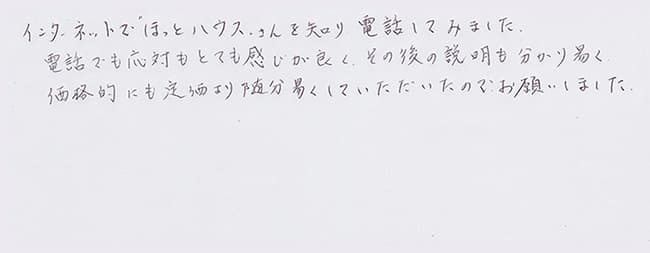 インターネットで"ほっとハウス"さんを知り電話してみました.
電話でも応対もとても感じが良く、その後の説明も分かり易く
価格的にも定価より随分易くしていただいたのでお願いしました.